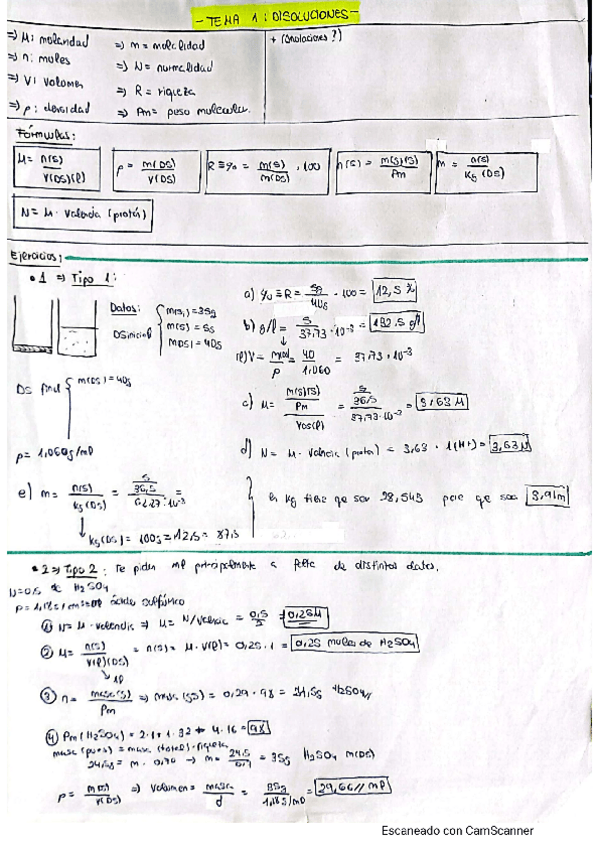 - TEMA 1: DISOLUCIONES -
⇒ M: molaridad ⇒ m = molalidad + (Anotaciones?)
⇒ n: moles ⇒ N = normalidad
⇒ V: volumen ⇒ R = riqueza
⇒ ρ: densidad ⇒ Pm = peso molecular.
Fórmulas:
M = n(s) / V(DS)(l)
ρ = m(DS) / V(DS)
R ≡ % = m(s) / m(DS) · 100
n(s) = m(s)(g) / Pm
m = n(s) / Kg (DS)
N = M · valencia (protón)
Ejercicios:
• 1 ⇒ Tipo 1:
Datos:
DS inicial { m(s) = 5g
m(DS) = 40g
DS final { m(DS) = 40g
ρ = 1,060 g/ml
a) % ≡ R = 5g / 40g · 100 = 12,5 %
b) g/l = 5 / 37,73 · 10⁻³ = 132,5 g/l
(l) V = m(DS) / ρ = 40 / 1,060 = 37,73 · 10⁻³
c) M = m(s)(g) / Pm / V(DS)(l) = 5 / 36,5 / 37,73 · 10⁻³ = 3,63 M
d) N = M · valencia (protón) = 3,63 · 1 (H+) = 3,63 N
e) m = n(s) / kg (DS) = 5 / 36,5 /
kg (DS) = 100g - 12,5 = 87,5
en kg tiene que ser para que sea 3,91m
• 2 ⇒ Tipo 2: Te piden ml principalmente a falta de distintos datos.
N = 0,5 de H2SO4
ácido sulfúrico
① N = M · valencia ⇒ M = N/valencia = 0,5 / 2 = 0,25 M
② M = n(s) / V(l)(DS) = n(s) = M · V(l) = 0,25 · 1 = 0,25 moles de H2SO4
1l
③ n = masa(s) / Pm ⇒ masa (s) = 0,25 · 98 = 24,5g H2SO4//
④ Pm (H2SO4) = 2·1 + 1·32 + 4·16 = 98
masa (puros) = masa (total) · riqueza
24,5g = m · 0,70 → m = 24,5 / 0,7 = 35g H2SO4 m(DS)
ρ = m(DS) / V(DS) ⇒ Volumen = masa / d = 35g / 1,18 g/ml = 29,66 // ml
Escaneado con CamScanner